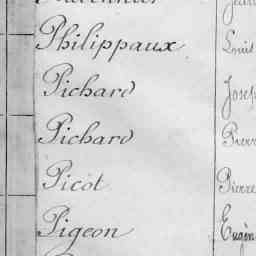 Philippaux Louis
Pichard Joseph
Pichard Pierre
Picot Pierre
Pigeon Eugèn